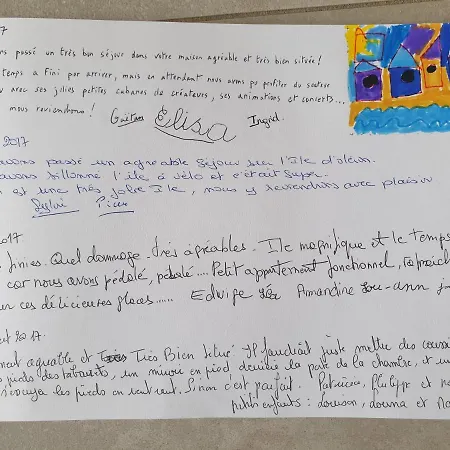 7
ns passé un très bon séjour dans votre maison agréable et très bien située !
temps a fini par arriver, mais en attendant nous avons pu profiter du
u avec ses jolies petites cabanes de créateurs, ses animations et concerts...
nous reviendrons ! Gaëtan Elisa Ingrid.
2017
avons passé un agréable séjour sur l'île d'oléron.
avons sillonné l'île à vélo et c'était super.
n est une très jolie Ile, nous y reviendrons avec plaisir
Sylvie Pierre
2017
finies. Quel dommage. très agréables. Ile magnifique et le temps
car nous avons pédalé, pédalé.... Petit appartement fonctionnel,
ces délicieuses glaces...... Edwige Amandine Lou-ann
t 2017.
ment agréable et Très Bien situé Il faudrait juste mettre des
pieds des tabourets, un miroir en pied derrière la porte de la chambre, et un
les pieds en rentrant. Sinon c'est parfait. Patricia, Philippe et
petits enfants : Louison, Louna et